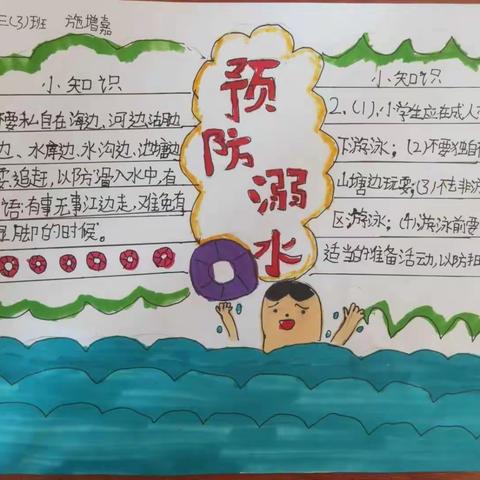 三(3)班 施增嘉
预防溺水
小知识
不要私自在海边、河边、湖
边、水库边、水沟边、池塘边
追赶,以防滑入水中,有
语:有事无事江边走,难免有
脚的时候。
小知识
2、(1)、小学生应在成人
下游泳;(2)不要独自
山塘边玩耍;(3)不去非游
区游泳;(4)游泳前要
适当的准备活动,以防抽